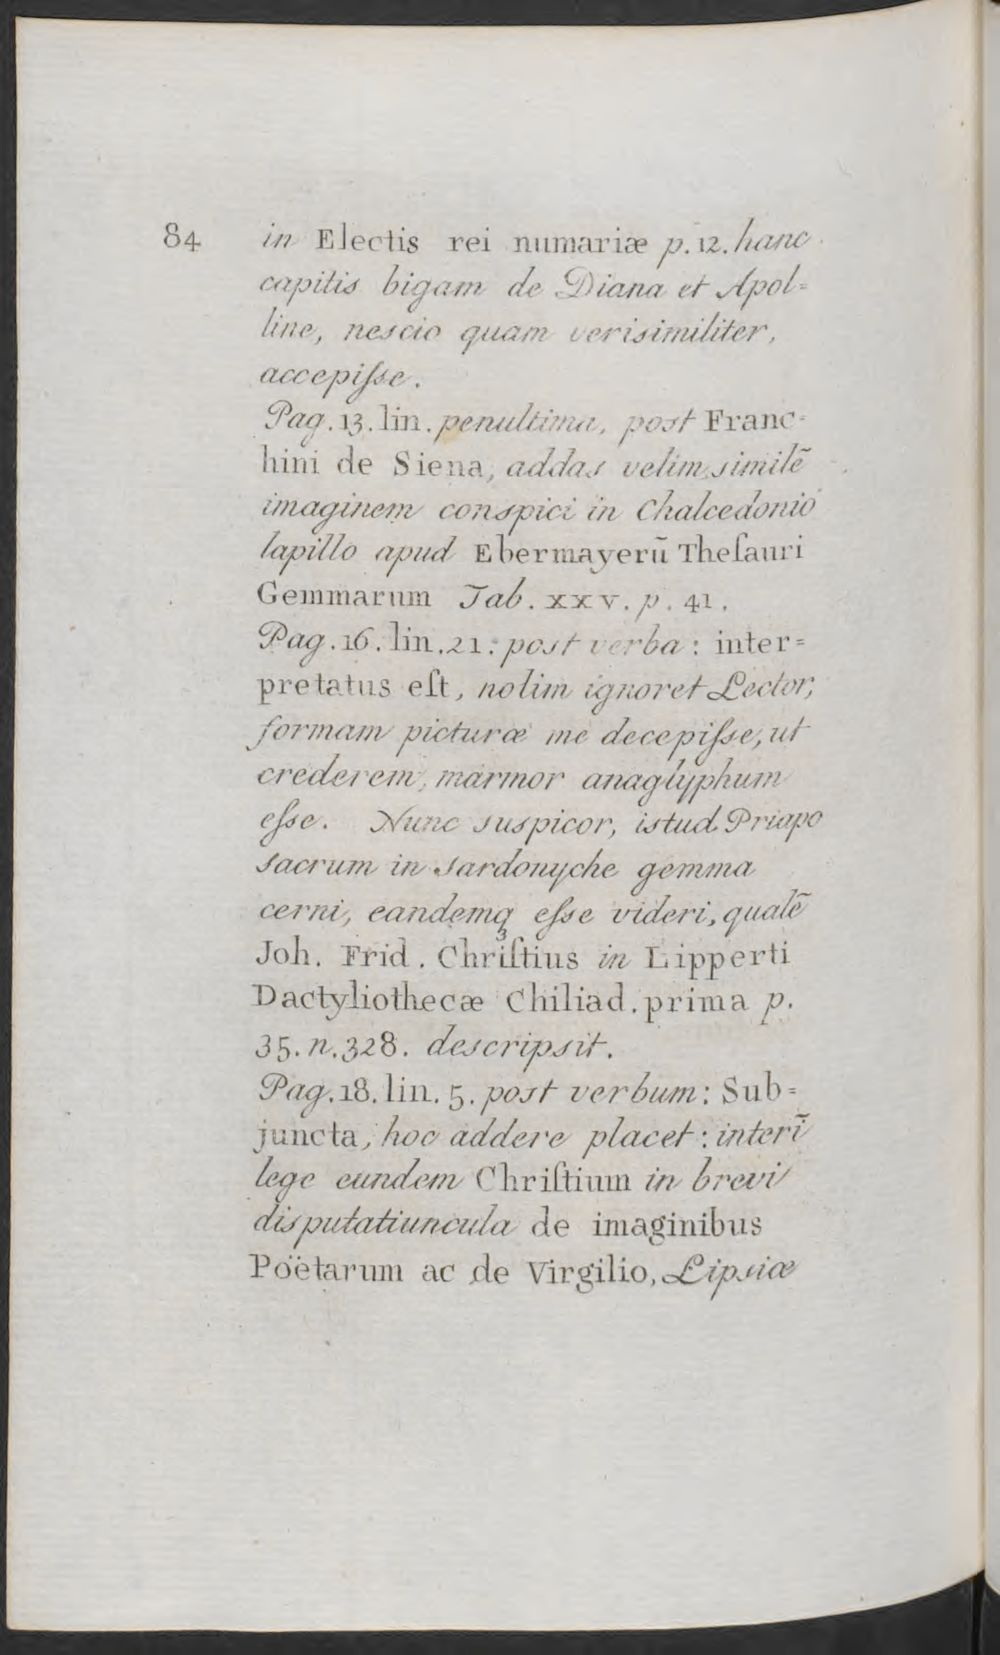 84 in Electis rei numariæ p. 12. hanc
capitis bigam de Diana et Apol=
line, nescio quam verisimiliter,
accepiſse.
Pag. 13. lin. penultima, post Franc=
hini de Siena, addas velim, similē
imaginem conspici in Chalcedonio
lapillo apud Ebermayerū Theſauri
Gemmarum Tab. XXV. p. 41.
Pag. 16. lin. 21: post verba: inter=
pretatus eſt, nolim ignoret Lector,
formam picturæ me decepiſse, ut
crederem, marmor anaglyphum
eſse. Nunc suspicor, istud Priapo
sacrum in Sardonyche gemma
cerni, eandemqꝫ eſse videri, qualē
Joh. Frid. Chriſtius in Lipperti
Dactyliothecæ Chiliad. prima p.
35. n. 328. descripsit.
Pag. 18. lin. 5. post verbum: Sub=
juncta, hoc addere placet: interī
lege eundem Chriſtium in brevi
disputatiuncula de imaginibus
Poëtarum ac de Virgilio, Lipsiæ